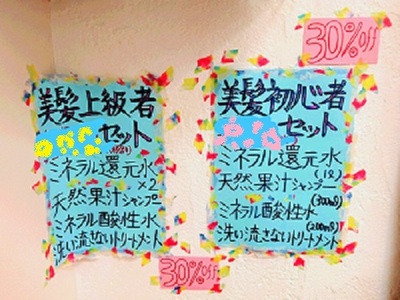 美髪上級者
セット
ミネラル還元水
×2
天然果汁シャンプー
ミネラル酸性水
洗い流さないトリートメント
30%off
30%off
美髪初心者
セット
ミネラル還元水
(1ℓ)
天然果汁シャンプー
(300ml)
ミネラル酸性水
(200ml)
洗い流さないトリートメント